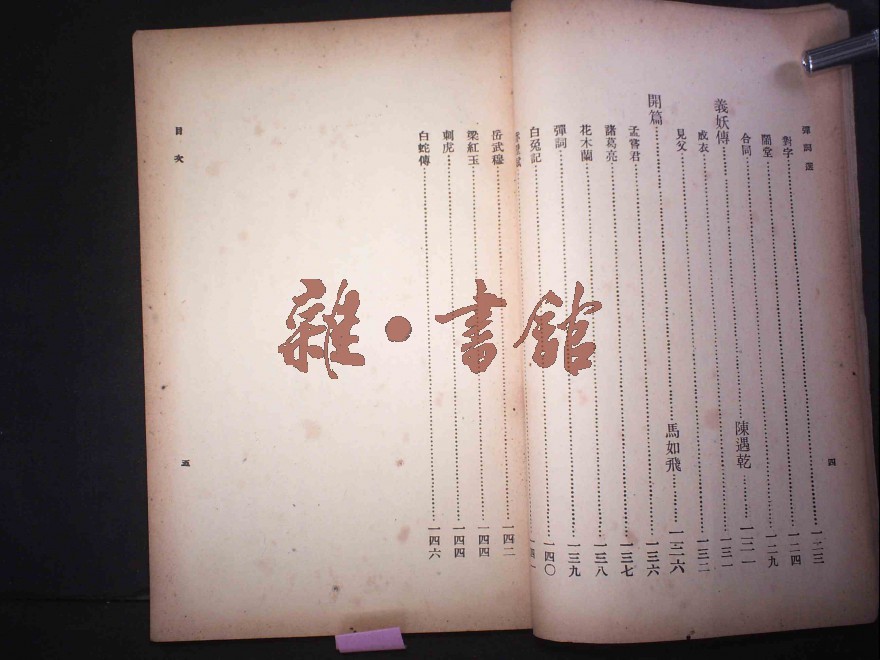 彈詞選
四
對字 一二三
鬧堂 一二四
合同 一二九
義妖傳 陳遇乾 一三一
成衣 一三一
見父 一三二
開篇 馬如飛 一三六
孟嘗君 一三六
諸葛亮 一三七
花木蘭 一三八
彈詞 一三九
白兔記 一四〇
一四一
岳武穆 一四二
梁紅玉 一四四
刺虎 一四四
白蛇傳 一四六
目次
五
雜·書館